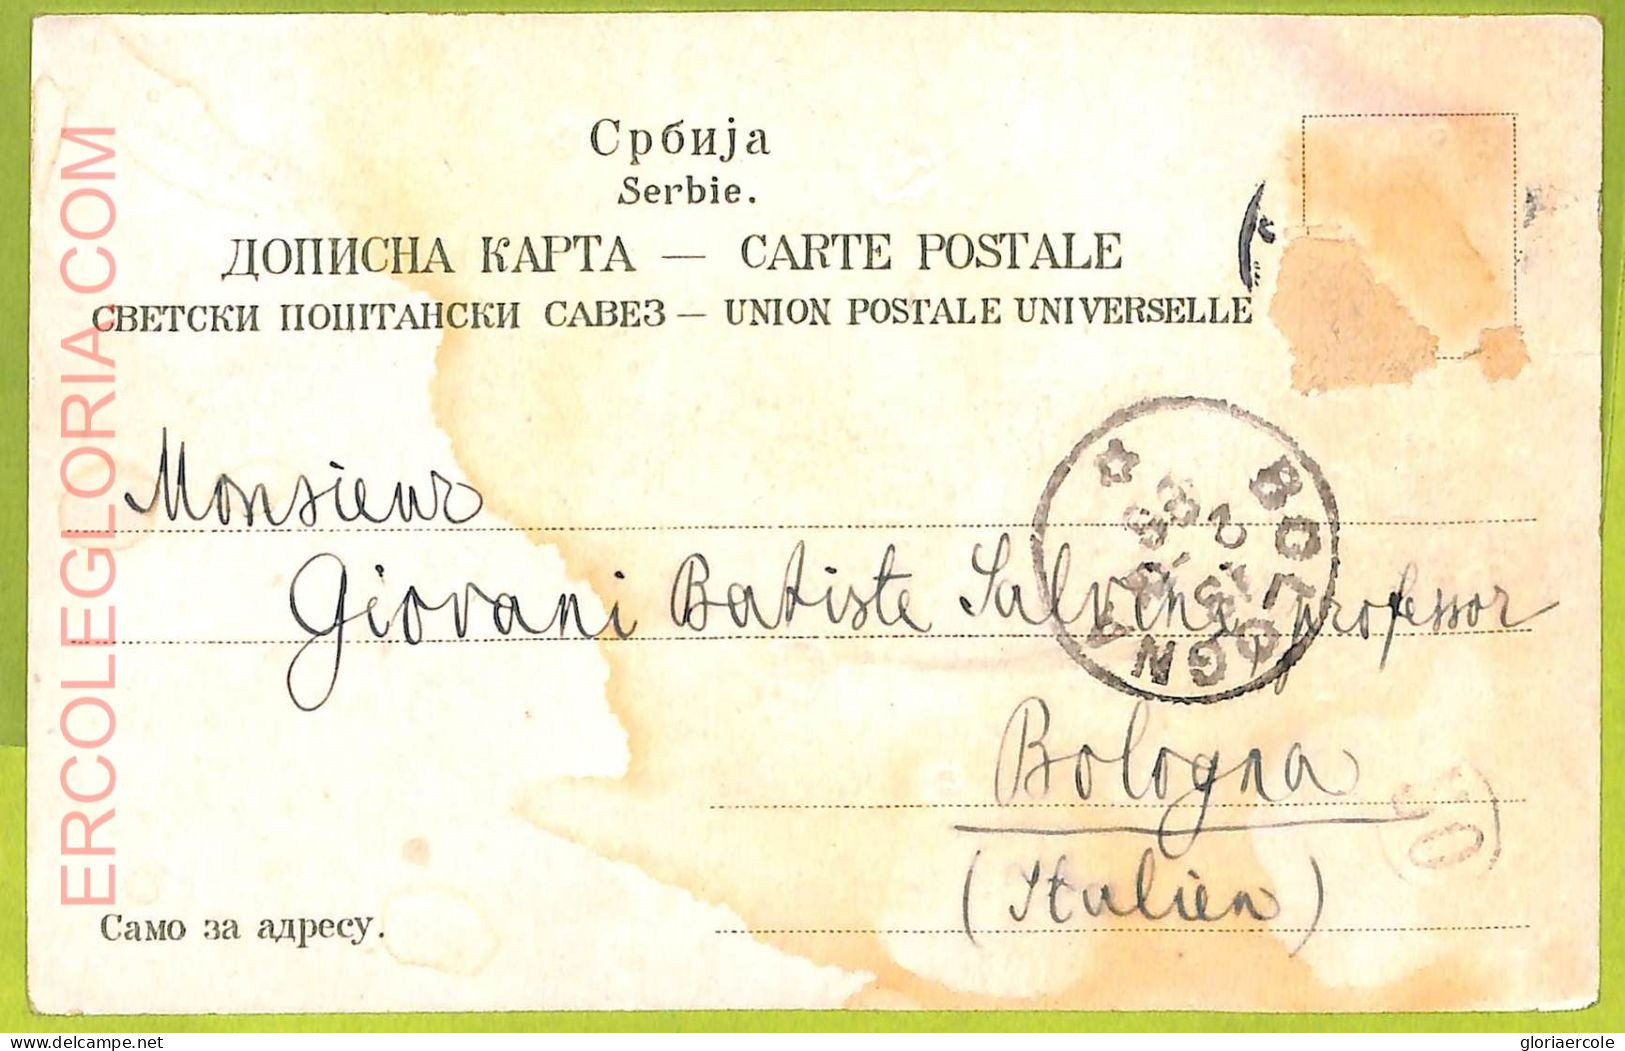 Србија
Serbie.
ДОПИСНА КАРТА — CARTE POSTALE
СВЕТСКИ ПОШТАНСКИ САВЕЗ — UNION POSTALE UNIVERSELLE
BOLOGNA
Monsieur
Giovani Batiste Salvini professor
Bologna
(Italien)
Само за адресу.
ERCOLEGLORIA.COM
delcampe.net
gloriaercole